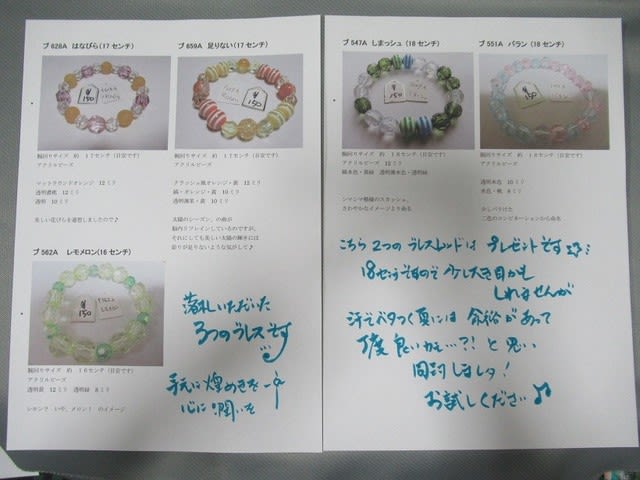 ブ628A はなびら(17センチ)
¥
150
腕回りサイズ 約 17センチ(目安です)
アクリルビーズ
マットラウンドオレンジ 12ミリ
透明濃桃 12ミリ
透明 10ミリ
美しい花びらを連想しましたので♪
ブ659A 足りない(17センチ)
¥
150
腕回りサイズ 約 17センチ(目安です)
アクリルビーズ
クラッシュ風オレンジ・黄 12ミリ
縞・オレンジ・黄 10ミリ
透明薄茶・黄 10ミリ
太陽のシーズン、の曲が
脳内リフレインしているのですが、
それにしても美しい太陽の輝きには
彩りが足りないような気がして♪
ブ562A レモメロン(16センチ)
¥
150
腕回りサイズ 約 16センチ(目安です)
アクリルビーズ
透明黄 12ミリ 透明緑 8ミリ
レモン? いや、メロン! のイメージ
落札いただいた
3つのブレスです
手元に煌めきを
心に潤いを
ブ547A しまっシュ(18センチ)
¥
150
腕回りサイズ 約 18センチ(目安です)
アクリルビーズ
縞水色・黄緑 透明薄水色・透明緑
シマシマ模様のスカッシュ、
さわやかなイメージより命名
ブ551A バラン(18センチ)
¥
150
腕回りサイズ 約 18センチ(目安です)
アクリルビーズ
透明水色 10ミリ
水色・桃 8ミリ
少しバラけた
二色のコンビネーションから命名
こちら2つのブレスレットは プレゼントです☆
18センチですので 少し大き目かも
しれませんが
汗でベタつく夏には 余裕があって
丁度良いかも…?! と思い
同封しました!
お試しください♪